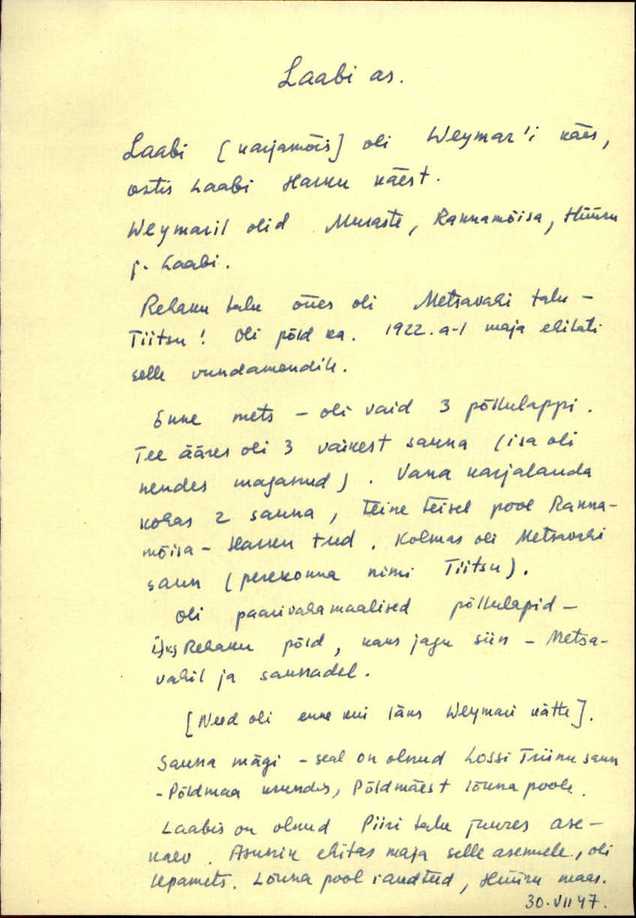 Laabi as.
Laabi [karjamõis] oli Weymar'i käes,
ostis Laabi Harku käest.
Weymaril olid Muraste, Rannamõisa, Hüüru
j. Laabi.
Rehaku talu õues oli Metsavahi talu -
Tiitsu! Oli põld ka. 1922. a-l maja ehitati
selle vundamendile.
Enne mets - oli vaid 3 põllulappi.
Tee ääres oli 3 väikest sauna (isa oli
nendes maganud). Vana karjalauda
kohas 2 sauna, teine teisel pool Ranna-
mõisa - Harku teed. Kolmas oli Metsavahi
saun (perekonna nimi Tiitsu).
Oli paarivakamaalised põllulapid -
üks Rehaku põld, kaks jagu siin - Metsa-
vahil ja saunadel.
[Need oli enne kui läks Weymari kätte].
Sauna mägi - seal on olnud Lossi Triinu saun
- Põldmaa krundis, Põldmäest lõuna poole.
Laabis on olnud Piiri talu juures ase-
kaev. Asunik ehitas maja selle asemele, oli
lepamets. Lõuna pool , Hüüru maas.
30.VII 47.